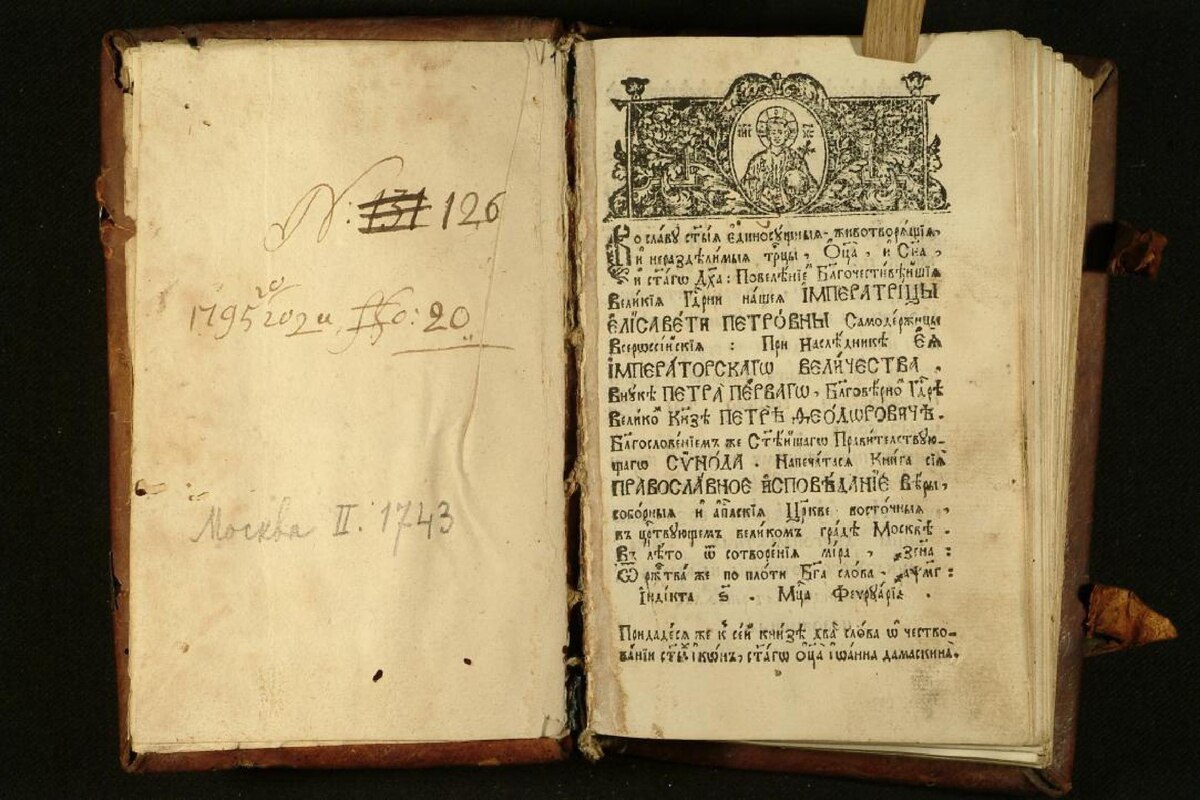 N: 131 126
1795 20 го года No: 20
Москва II. 1743
ІИС ХС
Во славу ст҃ыѧ є҆диносꙋ́щныѧ, животворѧ́щїѧ,
и҆ нераздѣ́лимыѧ трⷪ҇цы, Ѻ҆ц҃а̀, и҆ Сн҃а,
и҆ ст҃а́гѡ Дх҃а: Повелѣ́нїемъ Бл҃гочести́вѣйшїѧ
Вели́кїѧ Гдⷭ҇рни на́шеѧ І҆МПЕРАТРИ́ЦЫ
Є҆ЛІСАВЕ́ТИ ПЕТРО́ВНЫ Самоде́ржицы
Всерѡссі́йскїѧ : При Наслѣ́дникѣ Є҆Ѧ̀
І҆МПЕРА́ТОРСКАГѠ ВЕЛИ́ЧЕСТВА .
Внꙋ́кѣ ПЕТРА̀ ПЕ́РВАГѠ, Бл҃говѣ́рномъ Гдⷭ҇рѣ
Вели́комъ Кн҃зѣ ПЕТРѢ̀ ѲЕО́ДѠРОВИЧѢ.
Бл҃гослове́нїемъ же Ст҃ѣ́йшагѡ Прави́телствꙋю-
щагѡ СѴНО́ДА . Напеча́тасѧ Кни́га сїѧ̀
ПРАВОСЛА́ВНОЕ И҆СПОВѢ́ДАНЇЕ Вѣ́ры,
собо́рныѧ и҆ а҆пⷭ҇лскїѧ Цр҃кве восто́чныѧ ,
въ црⷭ҇твꙋющемъ вели́комъ гра́дѣ Москвѣ̀ .
Въ лѣ́то ѿ сотворе́нїѧ мі́ра , ҂зсн҃а :
Ѿ ржⷭ҇тва́ же по пло́ти Бг҃а сло́ва , ҂аѱм҃г :
І҆нді́кта ѕ҃ . Мцⷭ҇а Феѵрꙋа́рїа .
Придаде́сѧ же к̾ се́й кни́зѣ два̀ сло́ва ѡ҆ че́ство-
ва́нїи ст҃ы́хъ і҆кѡ́нъ, ст҃а́гѡ ѻ҆ц҃а̀ і҆ѡа́нна дамаскина̀.